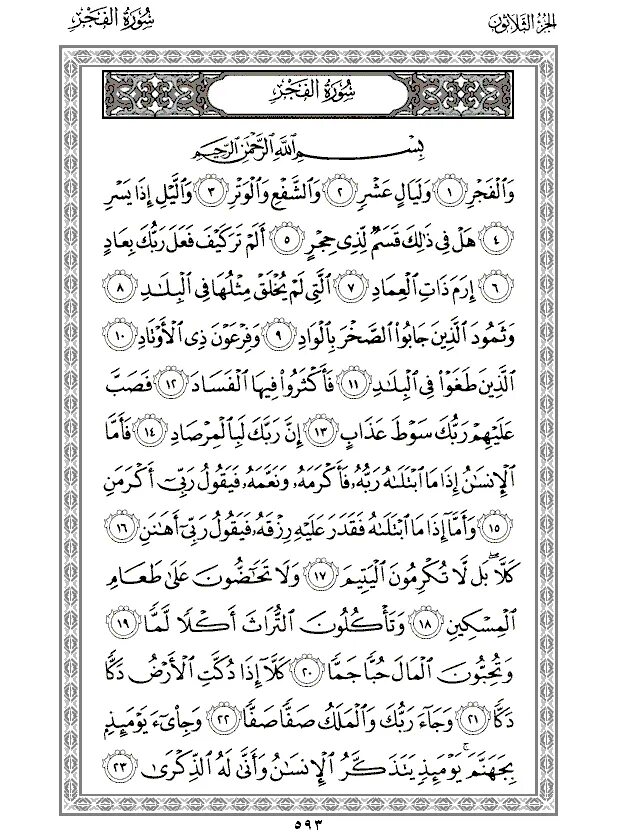 الجزء الثلاثون
سُورَةُ الفَجْرِ
سُورَةُ الفَجْرِ
بِسْمِ اللَّهِ الرَّحْمَٰنِ الرَّحِيمِ
وَالْفَجْرِ ١ وَلَيَالٍ عَشْرٍ ٢ وَالشَّفْعِ وَالْوَتْرِ ٣ وَاللَّيْلِ إِذَا يَسْرِ
٤ هَلْ فِي ذَٰلِكَ قَسَمٌ لِّذِي حِجْرٍ ٥ أَلَمْ تَرَ كَيْفَ فَعَلَ رَبُّكَ بِعَادٍ
٦ إِرَمَ ذَاتِ الْعِمَادِ ٧ الَّتِي لَمْ يُخْلَقْ مِثْلُهَا فِي الْبِلَٰدِ ٨
وَثَمُودَ الَّذِينَ جَابُوا الصَّخْرَ بِالْوَادِ ٩ وَفِرْعَوْنَ ذِي الْأَوْتَادِ ١٠
الَّذِينَ طَغَوْا فِي الْبِلَٰدِ ١١ فَأَكْثَرُوا فِيهَا الْفَسَادَ ١٢ فَصَبَّ
عَلَيْهِمْ رَبُّكَ سَوْطَ عَذَابٍ ١٣ إِنَّ رَبَّكَ لَبِالْمِرْصَادِ ١٤ فَأَمَّا
الْإِنسَٰنُ إِذَا مَا ابْتَلَىٰهُ رَبُّهُۥ فَأَكْرَمَهُۥ وَنَعَّمَهُۥ فَيَقُولُ رَبِّيٓ أَكْرَمَنِ
١٥ وَأَمَّآ إِذَا مَا ابْتَلَىٰهُ فَقَدَرَ عَلَيْهِ رِزْقَهُۥ فَيَقُولُ رَبِّيٓ أَهَٰنَنِ ١٦
كَلَّا ۖ بَل لَّا تُكْرِمُونَ الْيَتِيمَ ١٧ وَلَا تَحَٰٓضُّونَ عَلَىٰ طَعَامِ
الْمِسْكِينِ ١٨ وَتَأْكُلُونَ التُّرَاثَ أَكْلًا لَّمًّا ١٩
وَتُحِبُّونَ الْمَالَ حُبًّا جَمًّا ٢٠ كَلَّآ إِذَا دُكَّتِ الْأَرْضُ دَكًّا
دَكًّا ٢١ وَجَآءَ رَبُّكَ وَالْمَلَكُ صَفًّا صَفًّا ٢٢ وَجِا۟يٓءَ يَوْمَئِذٍۭ
بِجَهَنَّمَ ۚ يَوْمَئِذٍ يَتَذَكَّرُ الْإِنسَٰنُ وَأَنَّىٰ لَهُ الذِّكْرَىٰ ٢٣
٥٩٣